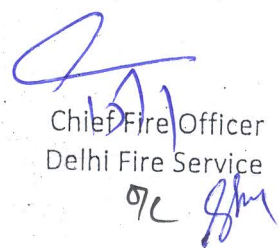 Chief Fire Officer
Delhi Fire Service
O/C